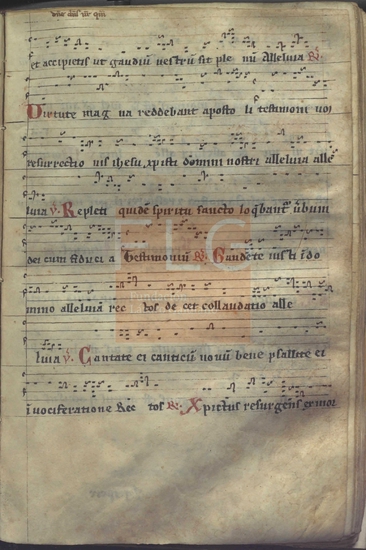 et accipietis ut gaudiũ uestrũ sit ple nũ Alleluia ℟
Uirtute mag na reddebant aposto li testimoni um
resurrectio nis ihesu xpisti domini nostri alleluia alle
luia ℣. Repleti quidẽ spiritu sancto loq̃bant̃ ũbum
dei cum fiduci a Testimonium ℟. Gaudete iusti ĩ do
mino alleluia rec tos de cet collaudatio alle
luia ℣. Cantate ei canticũ nouũ bene psallite ei
ĩ uociferatione Rec tos ℟. Xpictus resurgẽns ex mor